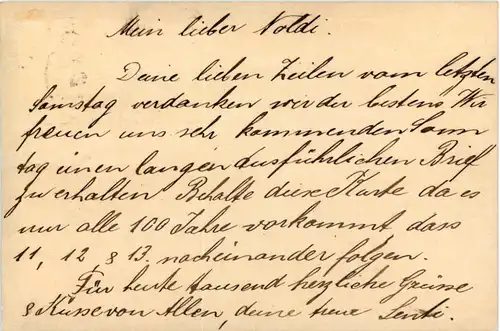 Mein lieber Noldi.
Deine lieben Zeilen vom letzten
Samstag verdanken wir dir bestens Wir
freuen uns sehr kommenden Sonn
tag einen langen ausführlichen Brief
zu erhalten Behalte diese Karte da es
nur alle 100 Jahre vorkommt dass
11, 12 & 13. nacheinander folgen.
Für heute tausend herzliche Grüsse
& Küsse von Allen, deine treue